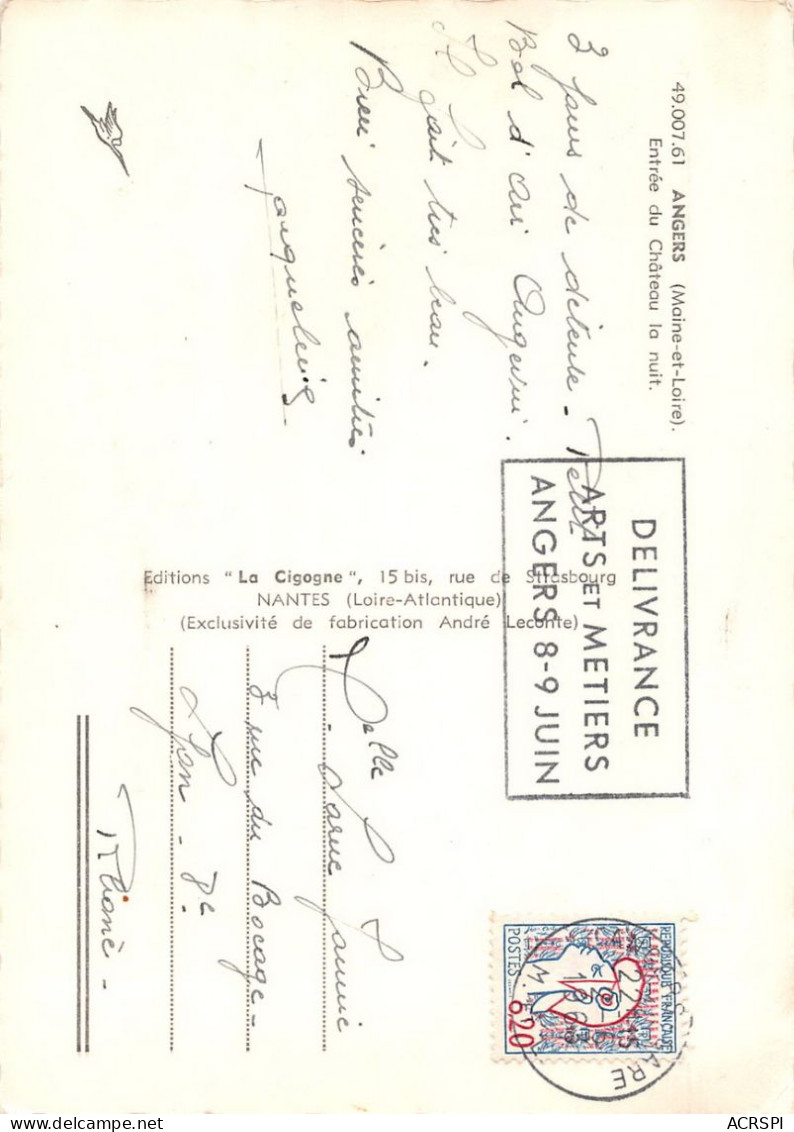 49.007.61 ANGERS (Maine-et-Loire).
Entrée du Château la nuit.
3 jours de détente - Petit
Bol d'air Angevin.
Il fait très beau.
Bien sincères amitiés
Jacqueline
Editions "La Cigogne", 15 bis, rue de Strasbourg
NANTES (Loire-Atlantique)
(Exclusivité de fabrication André Leconte)
DELIVRANCE
ARTS ET METIERS
ANGERS 8-9 JUIN
REPUBLIQUE FRANÇAISE
POSTES
0,20
22H15
1963
GARE
Melle
3 rue du Bocage -
Lyon - 8e
Rhône -
ACRSPI